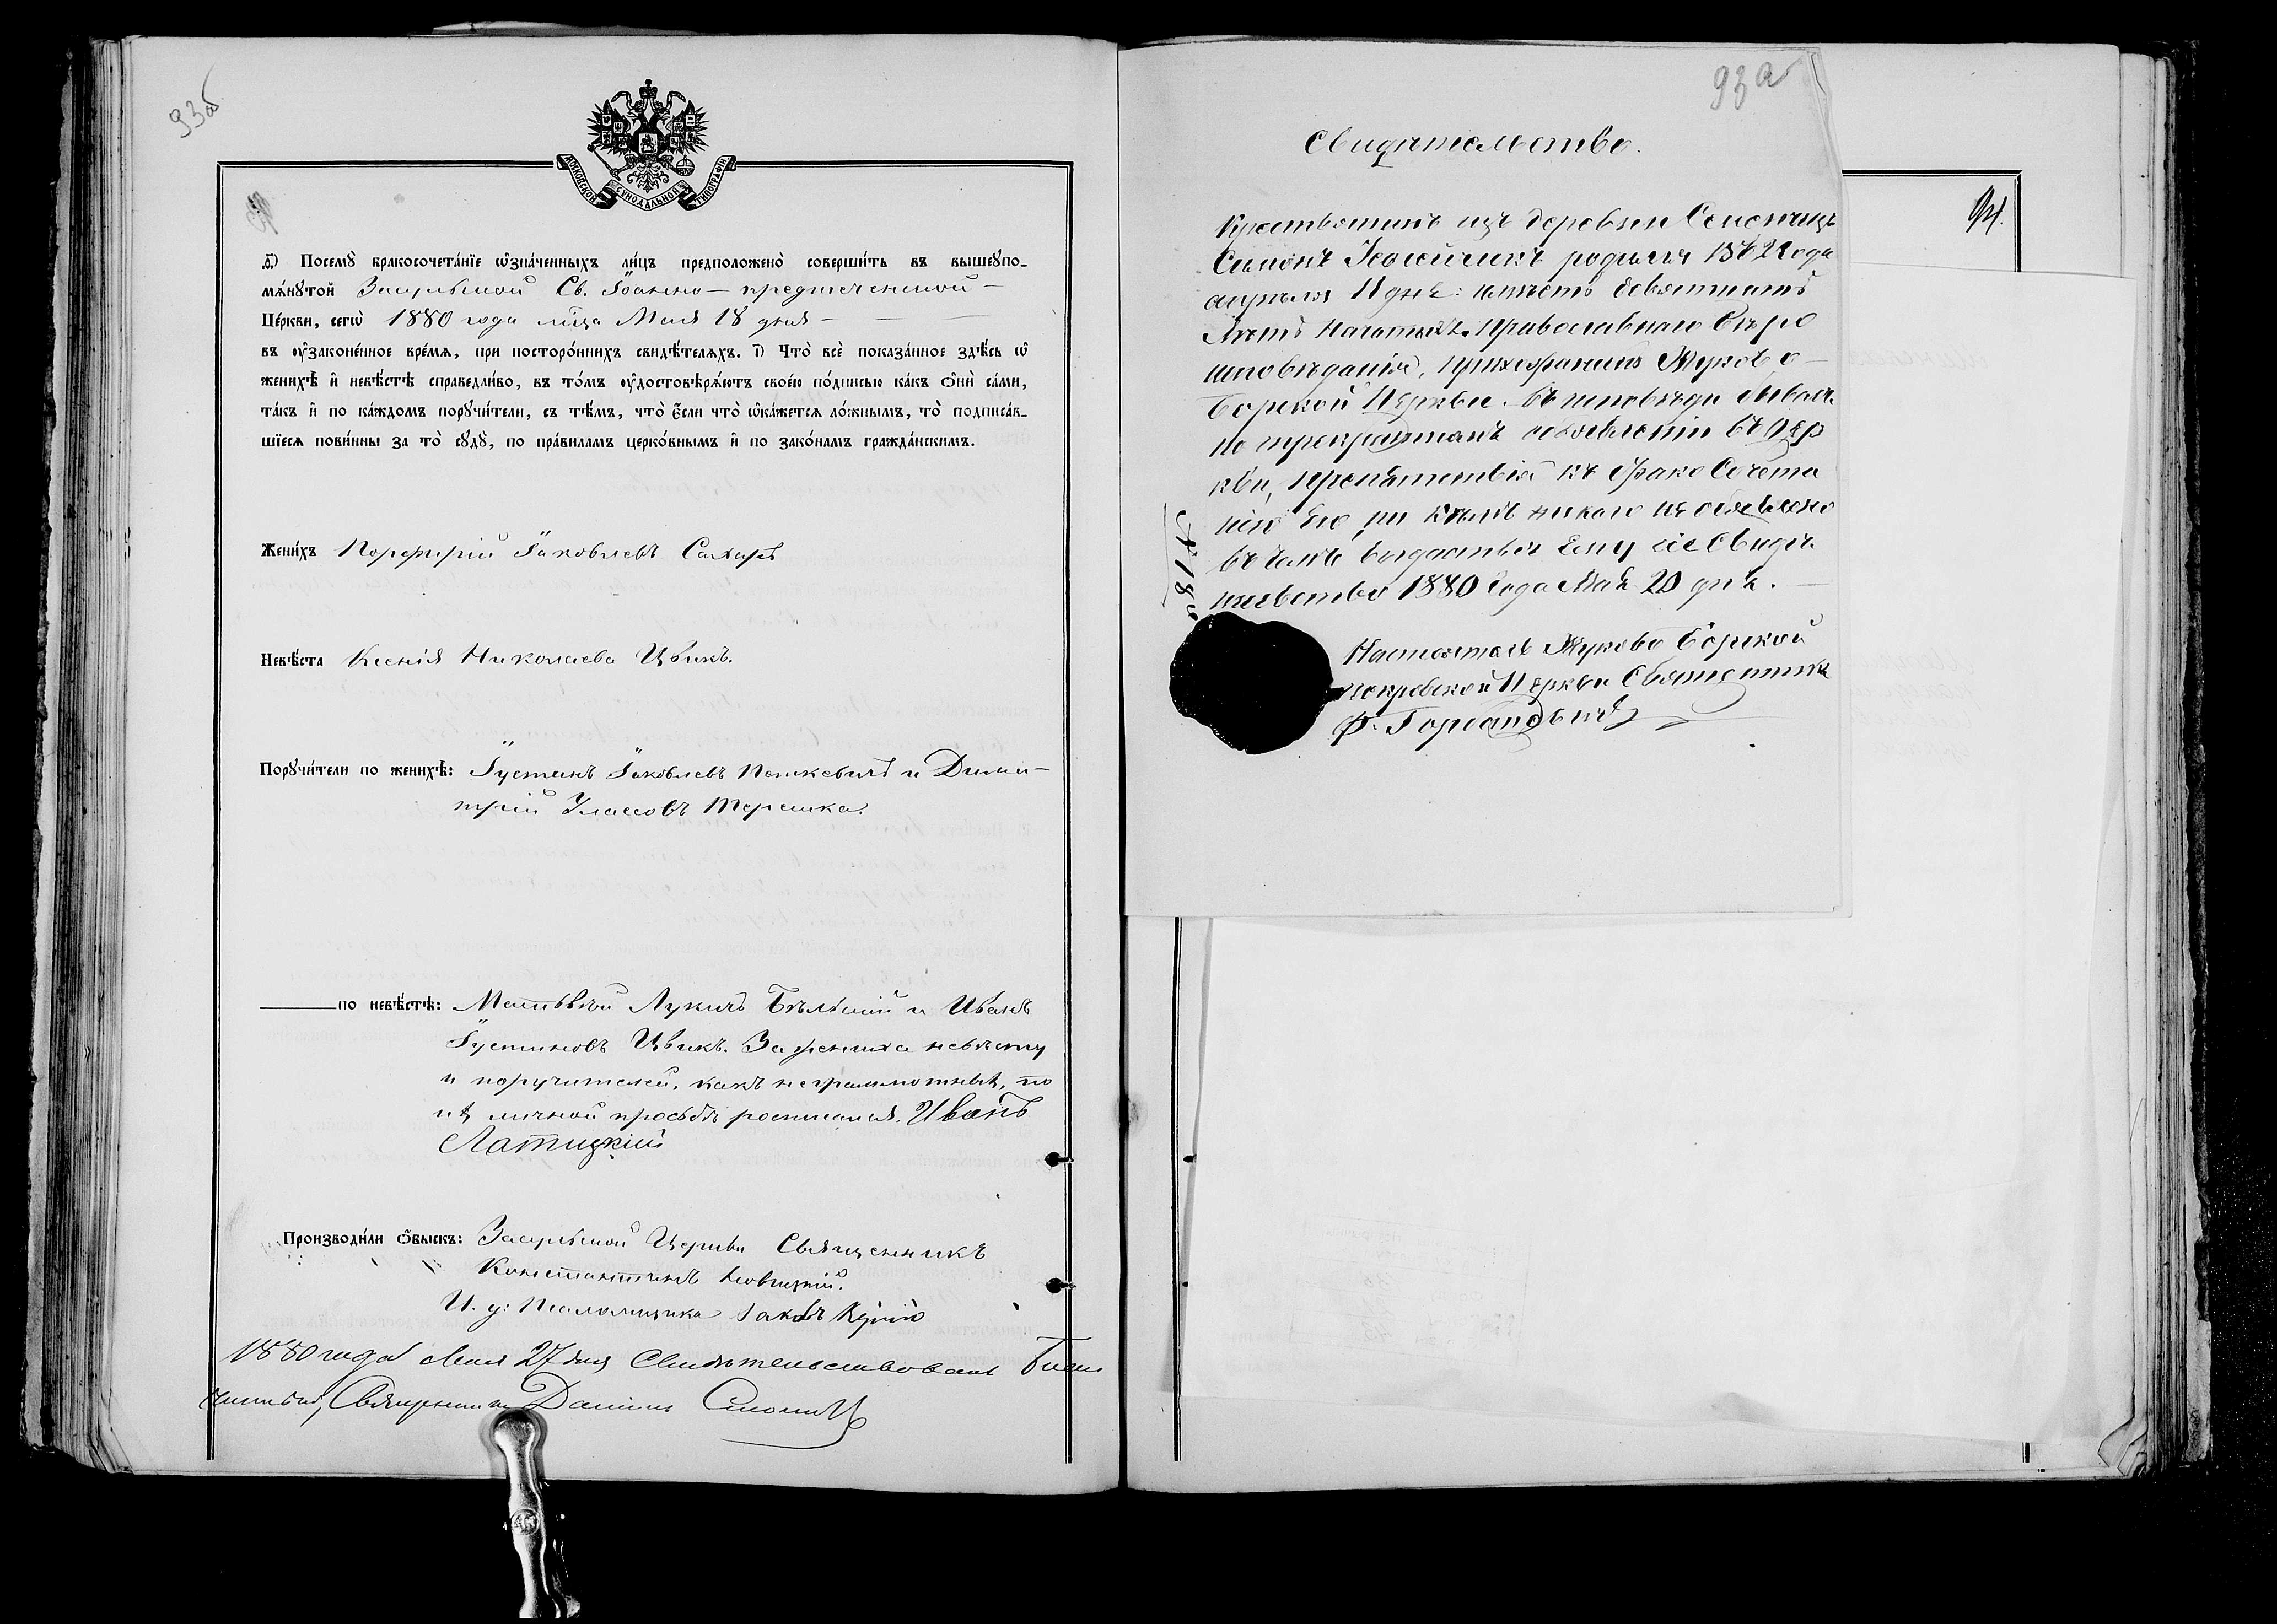 93об
МОСКОВСКОЙ СѴНОДАЛЬНОЙ ТИПОГРАФІИ
д҃) Посемꙋ̀ бракосочета́нїе ѡ҆зна́ченныхъ ли́цъ предположено̀ соверши́ть въ вышеꙋпо-
мѧ́нꙋтой Засульской Св. Іоанно-предтеченской
Це́ркви, сегѡ̀ 1880 года м̃ца Мая 18 дня
въ ᲂу҆зако́ненное вре́мѧ, при посторо́ннихъ свидѣ́телѧхъ. і҃) Что̀ всѐ показа́нное здѣ́сь ѡ҆
женихѣ̀ и҆ невѣ́стѣ справедли́во, въ то́мъ ᲂу҆достовѣрѧ́ютъ свое́ю по́дписью ка́къ ѻ҆нѝ са́ми,
та́къ и҆ по ка́ждомъ порꙋчи́тели, съ тѣ́мъ, что̀ є҆́сли что̀ ѡ҆ка́жетсѧ ло́жнымъ, то̀ подписа́в-
шїесѧ пови́нны за то̀ сꙋдꙋ̀, по пра́виламъ церко́внымъ и҆ по зако́намъ гражда́нскимъ.
Жени́хъ Порфирій Іаковлевъ Сахаръ
Невѣ́ста Ксенія Николаева Цвикъ.
Порꙋчи́тели по женихѣ̀: Іустинъ Іаковлевъ Петкевичъ и Дими-
трій Улассовъ Терешка.
по невѣ́стѣ: Матѳѣй Лукичъ Бѣльскій и Иванъ
Іустиновъ Цвикъ. За жениха невѣсту
и поручителей, какъ неграммотныхъ, по
ихъ личной просьбѣ росписался. Иванъ
Латицкій
Производи́ли ѻ҆́быскъ: Засульской Церкви Священникъ
Константинъ
И. у: Псаломщика Іаковъ
1880 года Мая 27 дня Свидѣтельствовалъ Благо-
чинный, Священникъ Даніилъ
93а
Свидѣтельство.
94.
Крестьянинъ изъ деревни
Симонъ родился 1862 года
апрѣля 11 дня: имѣетъ девятнадцать
лѣтъ Православнаго Вѣро
исповѣданія, прихожанинъ Жуково-
Борской Церкви въ исповѣди бывалъ
по трекратномъ объявленіи въ Цер
кви, препятствія къ бракосочета
нію Его ни кѣмъ никого не объявлено
въ чемъ выдастся Ему сіе Свидѣ
тельство 1880 Года Мая 20 дня.
№ 18
Настоятель Жуково Борской
покровской Церкви Священникъ
Ф. Горбацевичъ